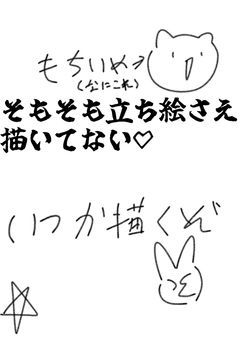 もちいぬ→
(なにこれ)
そもそも立ち絵さえ
描いてない♡
いつか描くぞ